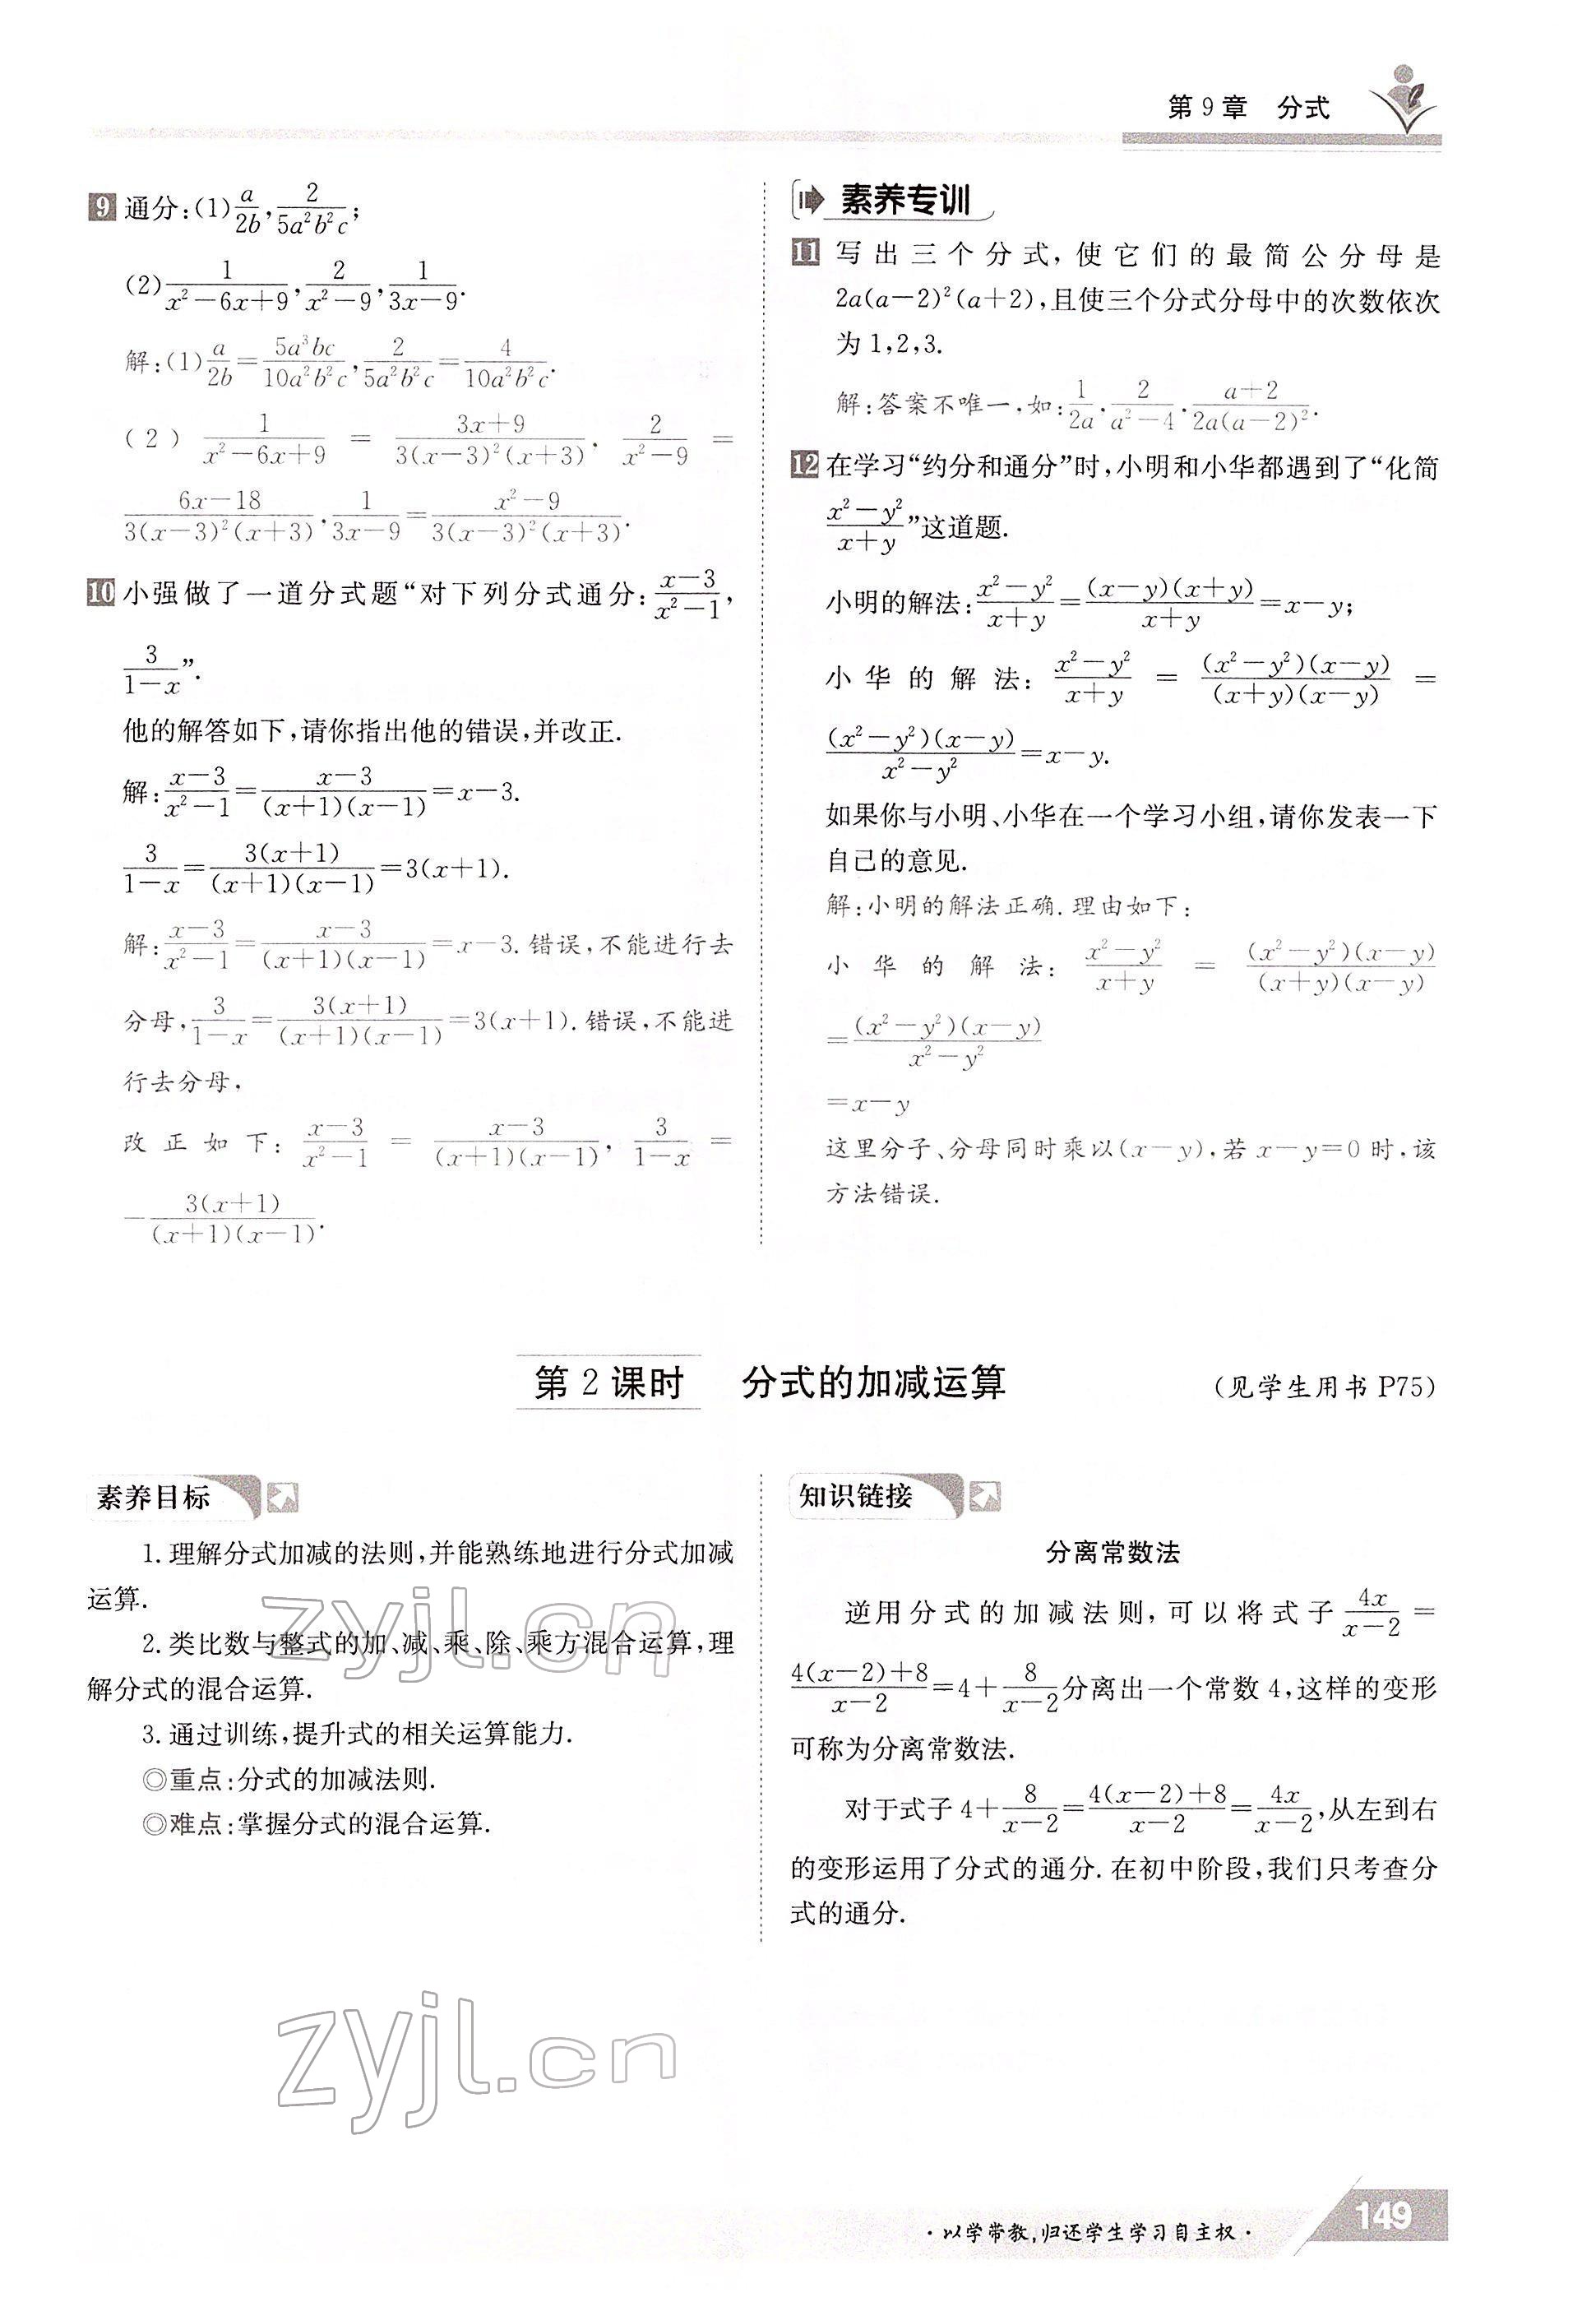 第9章 分式
9 通分:(1)a/2b, 2/5a²b²c;
(2)1/(x²-6x+9), 2/(x²-9), 1/(3x-9).
解:(1)a/2b=5a³bc/10a²b²c, 2/5a²b²c=4/10a²b²c.
(2) 1/(x²-6x+9) = (3x+9)/(3(x-3)²(x+3)), 2/(x²-9) =
(6x-18)/(3(x-3)²(x+3)), 1/(3x-9)=(x²-9)/(3(x-3)²(x+3)).
10 小强做了一道分式题“对下列分式通分:(x-3)/(x²-1),
3/(1-x)”.
他的解答如下,请你指出他的错误,并改正.
解:(x-3)/(x²-1)=(x-3)/((x+1)(x-1))=x-3.
3/(1-x)=3(x+1)/((x+1)(x-1))=3(x+1).
解:(x-3)/(x²-1)=(x-3)/((x+1)(x-1))=x-3.错误,不能进行去
分母,3/(1-x)=3(x+1)/((x+1)(x-1))=3(x+1).错误,不能进
行去分母,
改正如下:(x-3)/(x²-1) = (x-3)/((x+1)(x-1)), 3/(1-x) =
-3(x+1)/((x+1)(x-1)).
素养专训
11 写出三个分式,使它们的最简公分母是
2a(a-2)²(a+2),且使三个分式分母中的次数依次
为1,2,3.
解:答案不唯一,如:1/2a, 2/(a²-4), (a+2)/(2a(a-2)²).
12 在学习“约分和通分”时,小明和小华都遇到了“化简
(x²-y²)/(x+y)”这道题.
小明的解法:(x²-y²)/(x+y)=(x-y)(x+y)/(x+y)=x-y;
小华的解法:(x²-y²)/(x+y) = (x²-y²)(x-y)/((x+y)(x-y)) =
(x²-y²)(x-y)/(x²-y²)=x-y.
如果你与小明、小华在一个学习小组,请你发表一下
自己的意见.
解:小明的解法正确.理由如下:
小华的解法:(x²-y²)/(x+y) = (x²-y²)(x-y)/((x+y)(x-y))
=(x²-y²)(x-y)/(x²-y²)
=x-y
这里分子、分母同时乘以(x-y),若x-y=0时,该
方法错误.
第2课时 分式的加减运算 (见学生用书P75)
素养目标
1.理解分式加减的法则,并能熟练地进行分式加减
运算.
2.类比数与整式的加、减、乘、除、乘方混合运算,理
解分式的混合运算.
3.通过训练,提升式的相关运算能力.
◎重点:分式的加减法则.
◎难点:掌握分式的混合运算.
知识链接
分离常数法
逆用分式的加减法则,可以将式子4x/(x-2)=
(4(x-2)+8)/(x-2)=4+8/(x-2)分离出一个常数4,这样的变形
可称为分离常数法.
对于式子4+8/(x-2)=(4(x-2)+8)/(x-2)=4x/(x-2),从左到右
的变形运用了分式的通分.在初中阶段,我们只考查分
式的通分.
zyjl.cn
zyjl.cn
·以学带教,归还学生学习自主权·
149